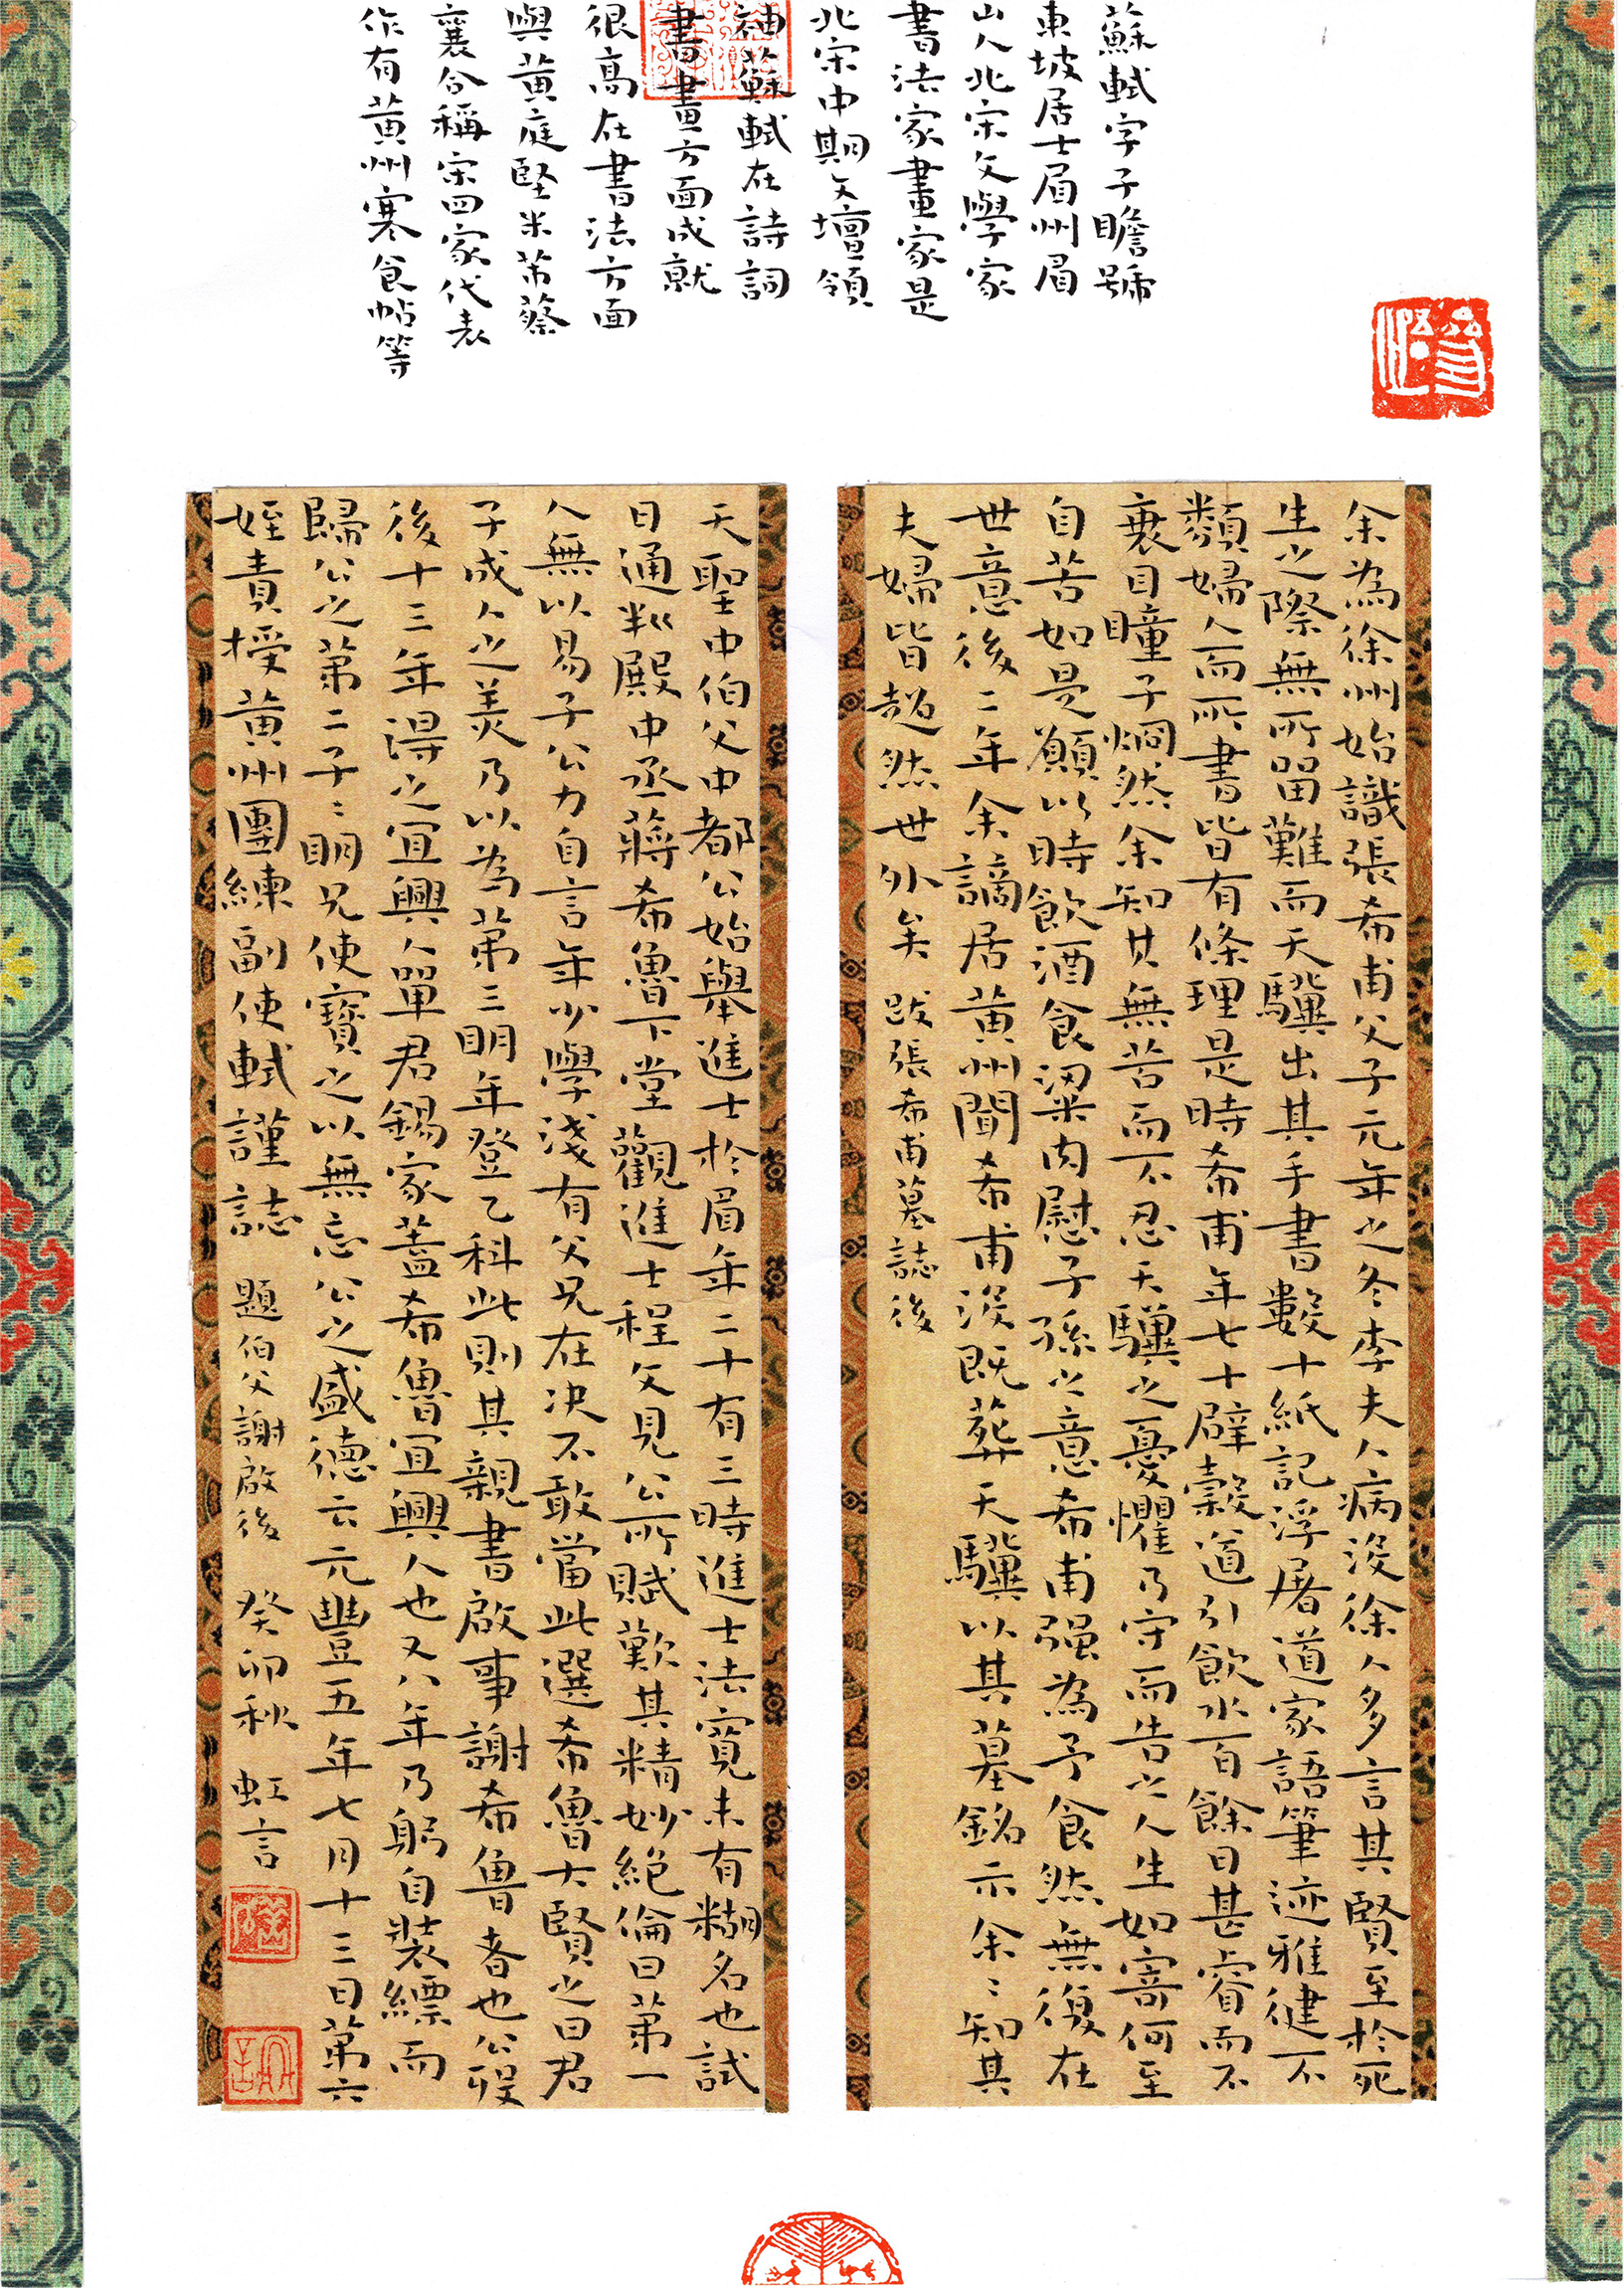 蘇軾字子瞻號
東坡居士眉州眉
山人北宋文學家
書法家畫家是
北宋中期文壇領
袖蘇軾在詩詞
書畫方面成就
很高在書法方面
與黃庭堅米芾蔡
襄合稱宋四家代表
作有黃州寒食帖等
余為徐州始識張希甫父子元年之冬李夫人病沒徐人多言其賢至於死
生之際無所留難而天驥出其手書數十紙記浮屠道家語筆迹雅健不
類婦人而所書皆有條理是時希甫年七十辟穀道引飲水百餘日甚瘠而不
衰目瞳子炯然余知其無苦而不忍天驥之憂懼乃守而告之人生如寄何至
自苦如是願以時飲酒食粱肉慰子孫之意希甫强為予食然無復在
世意後二年余謫居黃州聞希甫沒既葬天驥以其墓銘示余〻知其
夫婦皆超然世外矣 跋張希甫墓誌後
天聖中伯父中都公始舉進士於眉年二十有三時進士法寬未有糊名也試
日通判殿中丞蔣希魯下堂觀進士程文見公所賦歎其精妙絕倫曰第一
人無以易子公力自言年少學淺有父兄在決不敢當此選希魯大賢之曰君
子成人之美乃以為第三明年登乙科此則其親書啟事謝希魯者也公歿
後十三年得之宜興人單君錫家蓋希魯宜興人也又八年乃躬自裝縹而
歸公之第二子〻明兄使寶之以無忘公之盛德云元豐五年七月十三日第六
姪責授黃州團練副使軾謹誌 題伯父謝啟後 癸卯秋 虹言